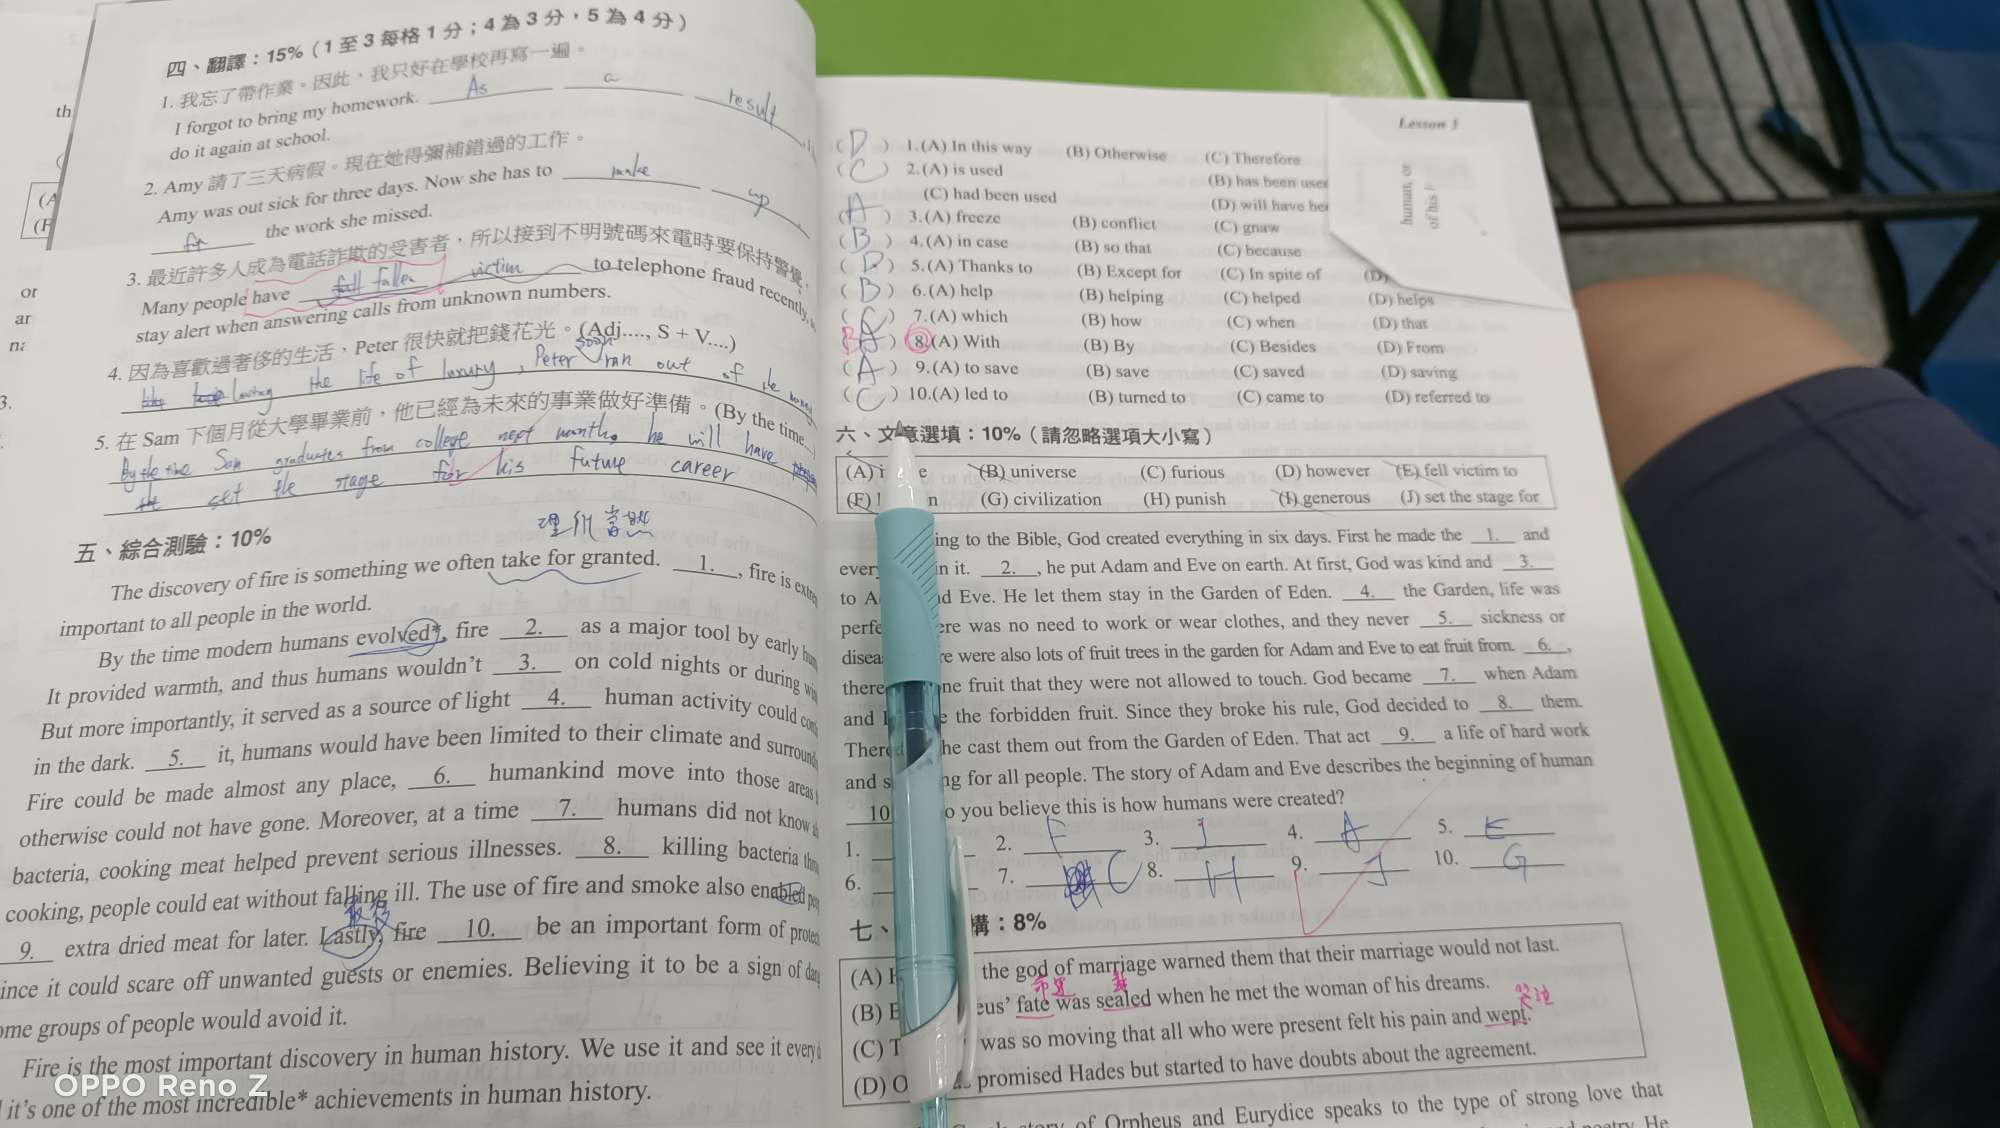 四、翻譯：15%（1 至 3 每格 1 分；4 為 3 分，5 為 4 分）
1. 我忘了帶作業。因此，我只好在學校再寫一遍。
I forgot to bring my homework. As a result
do it again at school.
2. Amy 請了三天病假。現在她得彌補錯過的工作。
Amy was out sick for three days. Now she has to make up
for the work she missed.
3. 最近許多人成為電話詐欺的受害者，所以接到不明號碼來電時要保持警覺，
Many people have fallen victim to telephone fraud recently,
stay alert when answering calls from unknown numbers.
4. 因為喜歡過奢侈的生活，Peter 很快就把錢花光。(Adj...., S + V....)
loving the life of luxury, Peter soon ran out of
5. 在 Sam 下個月從大學畢業前，他已經為未來的事業做好準備。(By the time...)
By the time Sam graduates from college next month, he will have
set the stage for his future career
理所當然
五、綜合測驗：10%
The discovery of fire is something we often take for granted. 1. , fire is
important to all people in the world.
By the time modern humans evolved*, fire 2. as a major tool by early
It provided warmth, and thus humans wouldn't 3. on cold nights or during
But more importantly, it served as a source of light 4. human activity could
in the dark. 5. it, humans would have been limited to their climate and
Fire could be made almost any place, 6. humankind move into those areas
otherwise could not have gone. Moreover, at a time 7. humans did not know
bacteria, cooking meat helped prevent serious illnesses. 8. killing bacteria
cooking, people could eat without falling ill. The use of fire and smoke also enabled
最後
9. extra dried meat for later. Lastly, fire 10. be an important form of
ince it could scare off unwanted guests or enemies. Believing it to be a sign of
ome groups of people would avoid it.
Fire is the most important discovery in human history. We use it and see it every
it's one of the most incredible* achievements in human history.
Lesson 3
human, or
of his
( D ) 1.(A) In this way (B) Otherwise (C) Therefore
( C ) 2.(A) is used (B) has been used
(C) had been used (D) will have
( A ) 3.(A) freeze (B) conflict (C) gnaw
( B ) 4.(A) in case (B) so that (C) because
( D ) 5.(A) Thanks to (B) Except for (C) In spite of (D)
( B ) 6.(A) help (B) helping (C) helped (D) helps
( C ) 7.(A) which (B) how (C) when (D) that
( ) 8.(A) With (B) By (C) Besides (D) From
( A ) 9.(A) to save (B) save (C) saved (D) saving
( C ) 10.(A) led to (B) turned to (C) came to (D) referred to
六、文意選填：10%（請忽略選項大小寫）
(A) (B) universe (C) furious (D) however (E) fell victim to
(F) (G) civilization (H) punish (I) generous (J) set the stage for
ing to the Bible, God created everything in six days. First he made the 1. and
in it. 2. , he put Adam and Eve on earth. At first, God was kind and 3.
to Eve. He let them stay in the Garden of Eden. 4. the Garden, life was
was no need to work or wear clothes, and they never 5. sickness or
were also lots of fruit trees in the garden for Adam and Eve to eat fruit from. 6. ,
fruit that they were not allowed to touch. God became 7. when Adam
and the forbidden fruit. Since they broke his rule, God decided to 8. them.
he cast them out from the Garden of Eden. That act 9. a life of hard work
and for all people. The story of Adam and Eve describes the beginning of human
10 you believe this is how humans were created?
1. 2. F 3. I 4. A 5. E
6. 7. C 8. H 9. J 10. G
七、 構：8%
(A) the god of marriage warned them that their marriage would not last.
命運
(B) eus' fate was sealed when he met the woman of his dreams.
哭泣
(C) was so moving that all who were present felt his pain and wept.
(D) promised Hades but started to have doubts about the agreement.
of Orpheus and Eurydice speaks to the type of strong love that
poetry. He
OPPO Reno Z